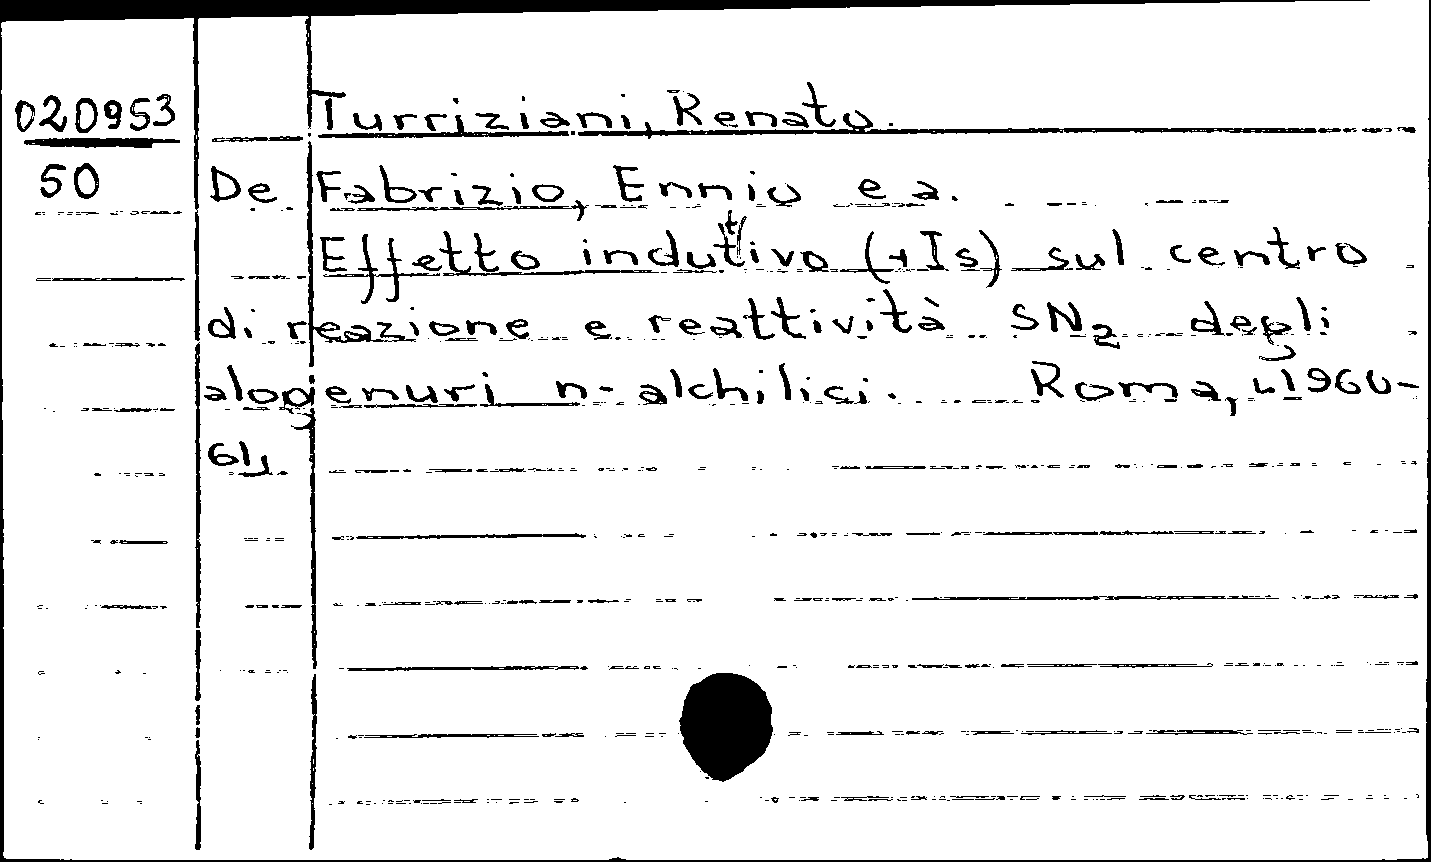 020953 Turriziani, Renato.
50 De Fabrizio, Ennio e a.
Effetto induttivo (+Is) sul centro
di reazione e reattività SN₂ degli
alogenuri n-alchilici. Roma, [1960-
61].